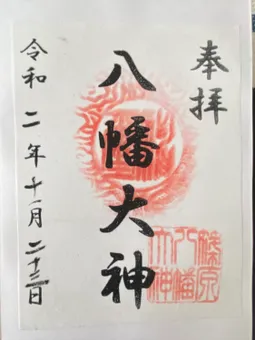 奉拝
八幡大神
篠原
八幡
大神
令和二年十一月二十三日